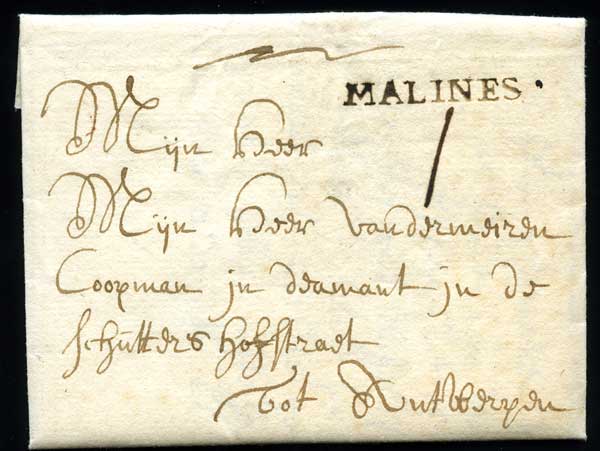 MALINES.
1
Mijn Heer
Mijn Heer vandermeiren
Coopman in deamant in de
schutters hofstraet
Tot Antwerpen